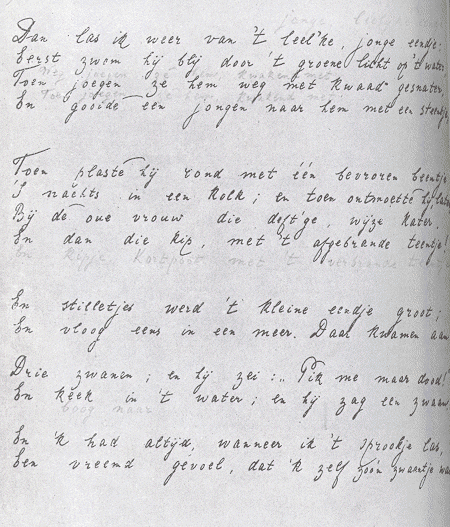 Dan las ik weer van 't leel'ke, jonge eendje:
Eerst zwem hij blij door 't groene licht op 't water,
Toen joegen ze hem weg met kwaad gesnater,
En gooide een jongen naar hem met een steentje.
Toen plaste hij rond met één bevroren beentje
'S nachts in een kolk; en toen ontmoette hij later
Bij de oue vrouw die deft'ge, wijze kater,
En dan die kip, met 't afgebrande teentje!
En stilletjes werd 't kleine eendje groot;
En vloog eens in een meer. Daar kwamen aan
Drie zwanen; en hij zei: „Pik me maar dood!"
En keek in 't water; en hij zag een zwaan.
En 'k had altijd, wanneer ik 't sprookje las,
Een vreemd gevoel, dat 'k zelf zóó'n zwaantje was